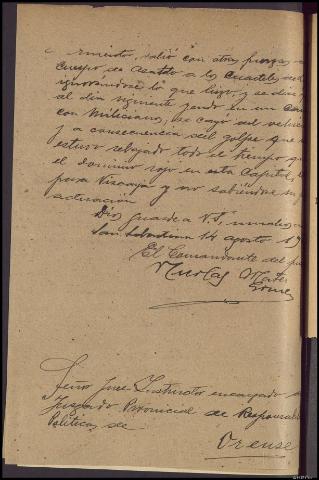 salió con otras fuerzas
Cuerpo de Asalto a los Cuarteles
ignorándose lo que hizo, y se dice
al día siguiente yendo en un
con Milicianos, se cayó del
y a consecuencia del golpe que
estuvo rebajado todo el tiempo
el dominio rojo en esta Capital,
para Vizcaya y no sabiéndose
actuación
Dios guarde a V.S. muchos
San Sebastian 14 agosto 19
El Comandante del
Nicolas
Señor Juez Instructor encargado
Juzgado Provincial de
Políticas de
Orense